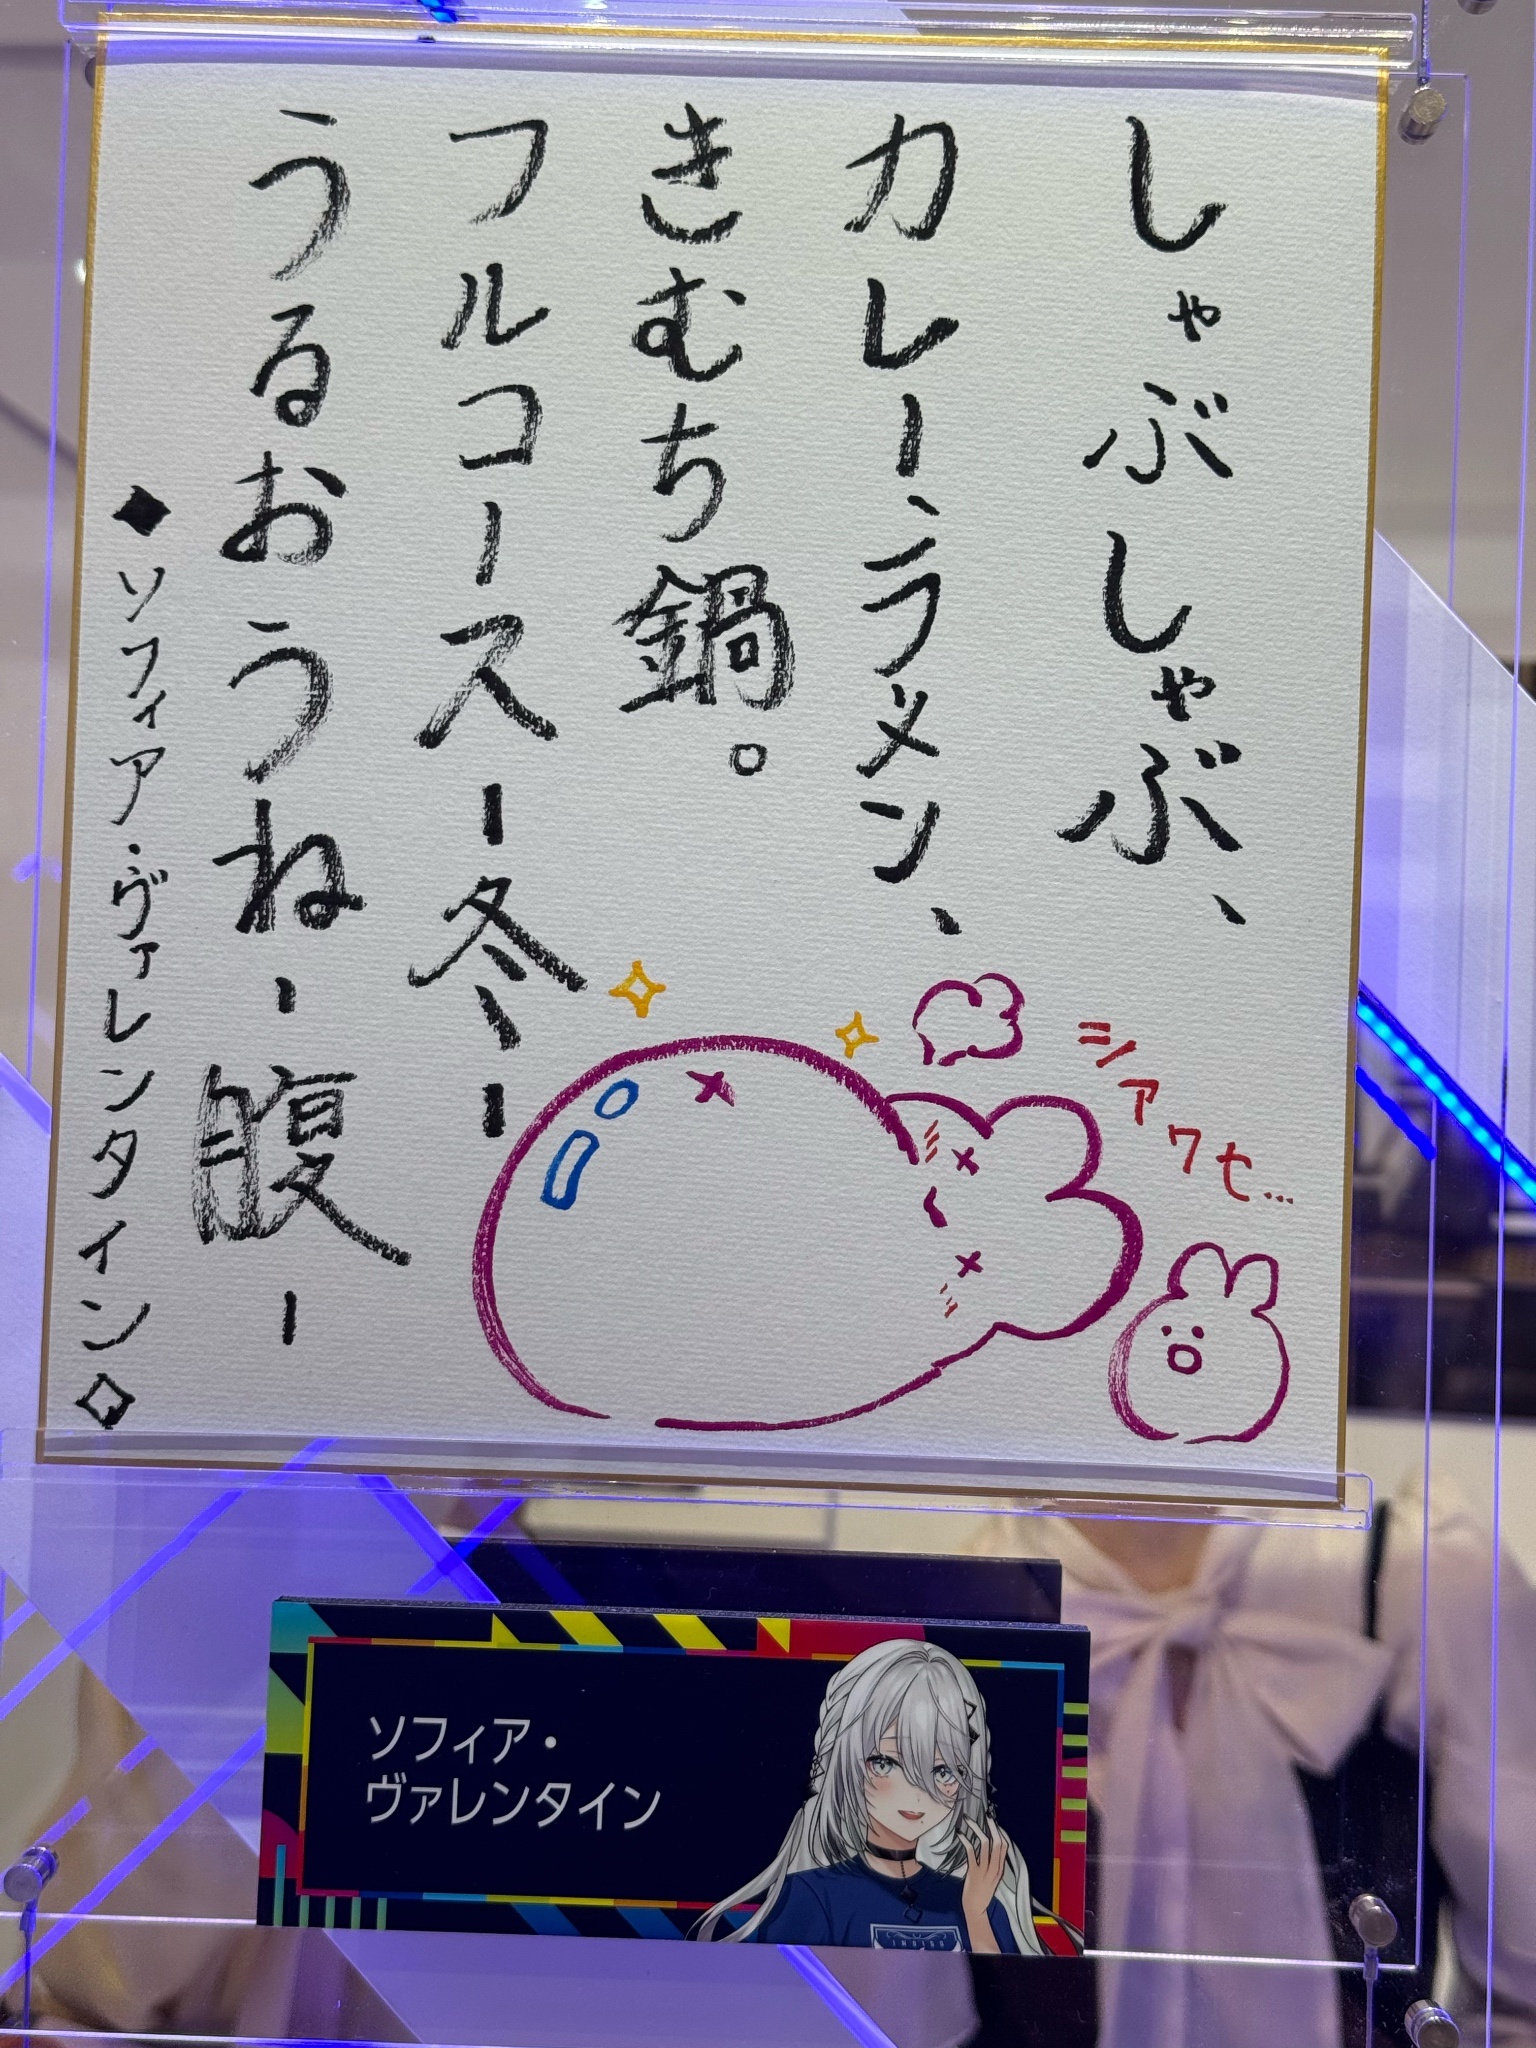 しゃぶしゃぶ、
カレーラメン、
きむちち鍋。
フルコースー冬ー
うるおうねー腹ー
◆ソフィア・ヴァレンタイン◇
シアワセ…
ソフィア・
ヴァレンタイン
INDIGO